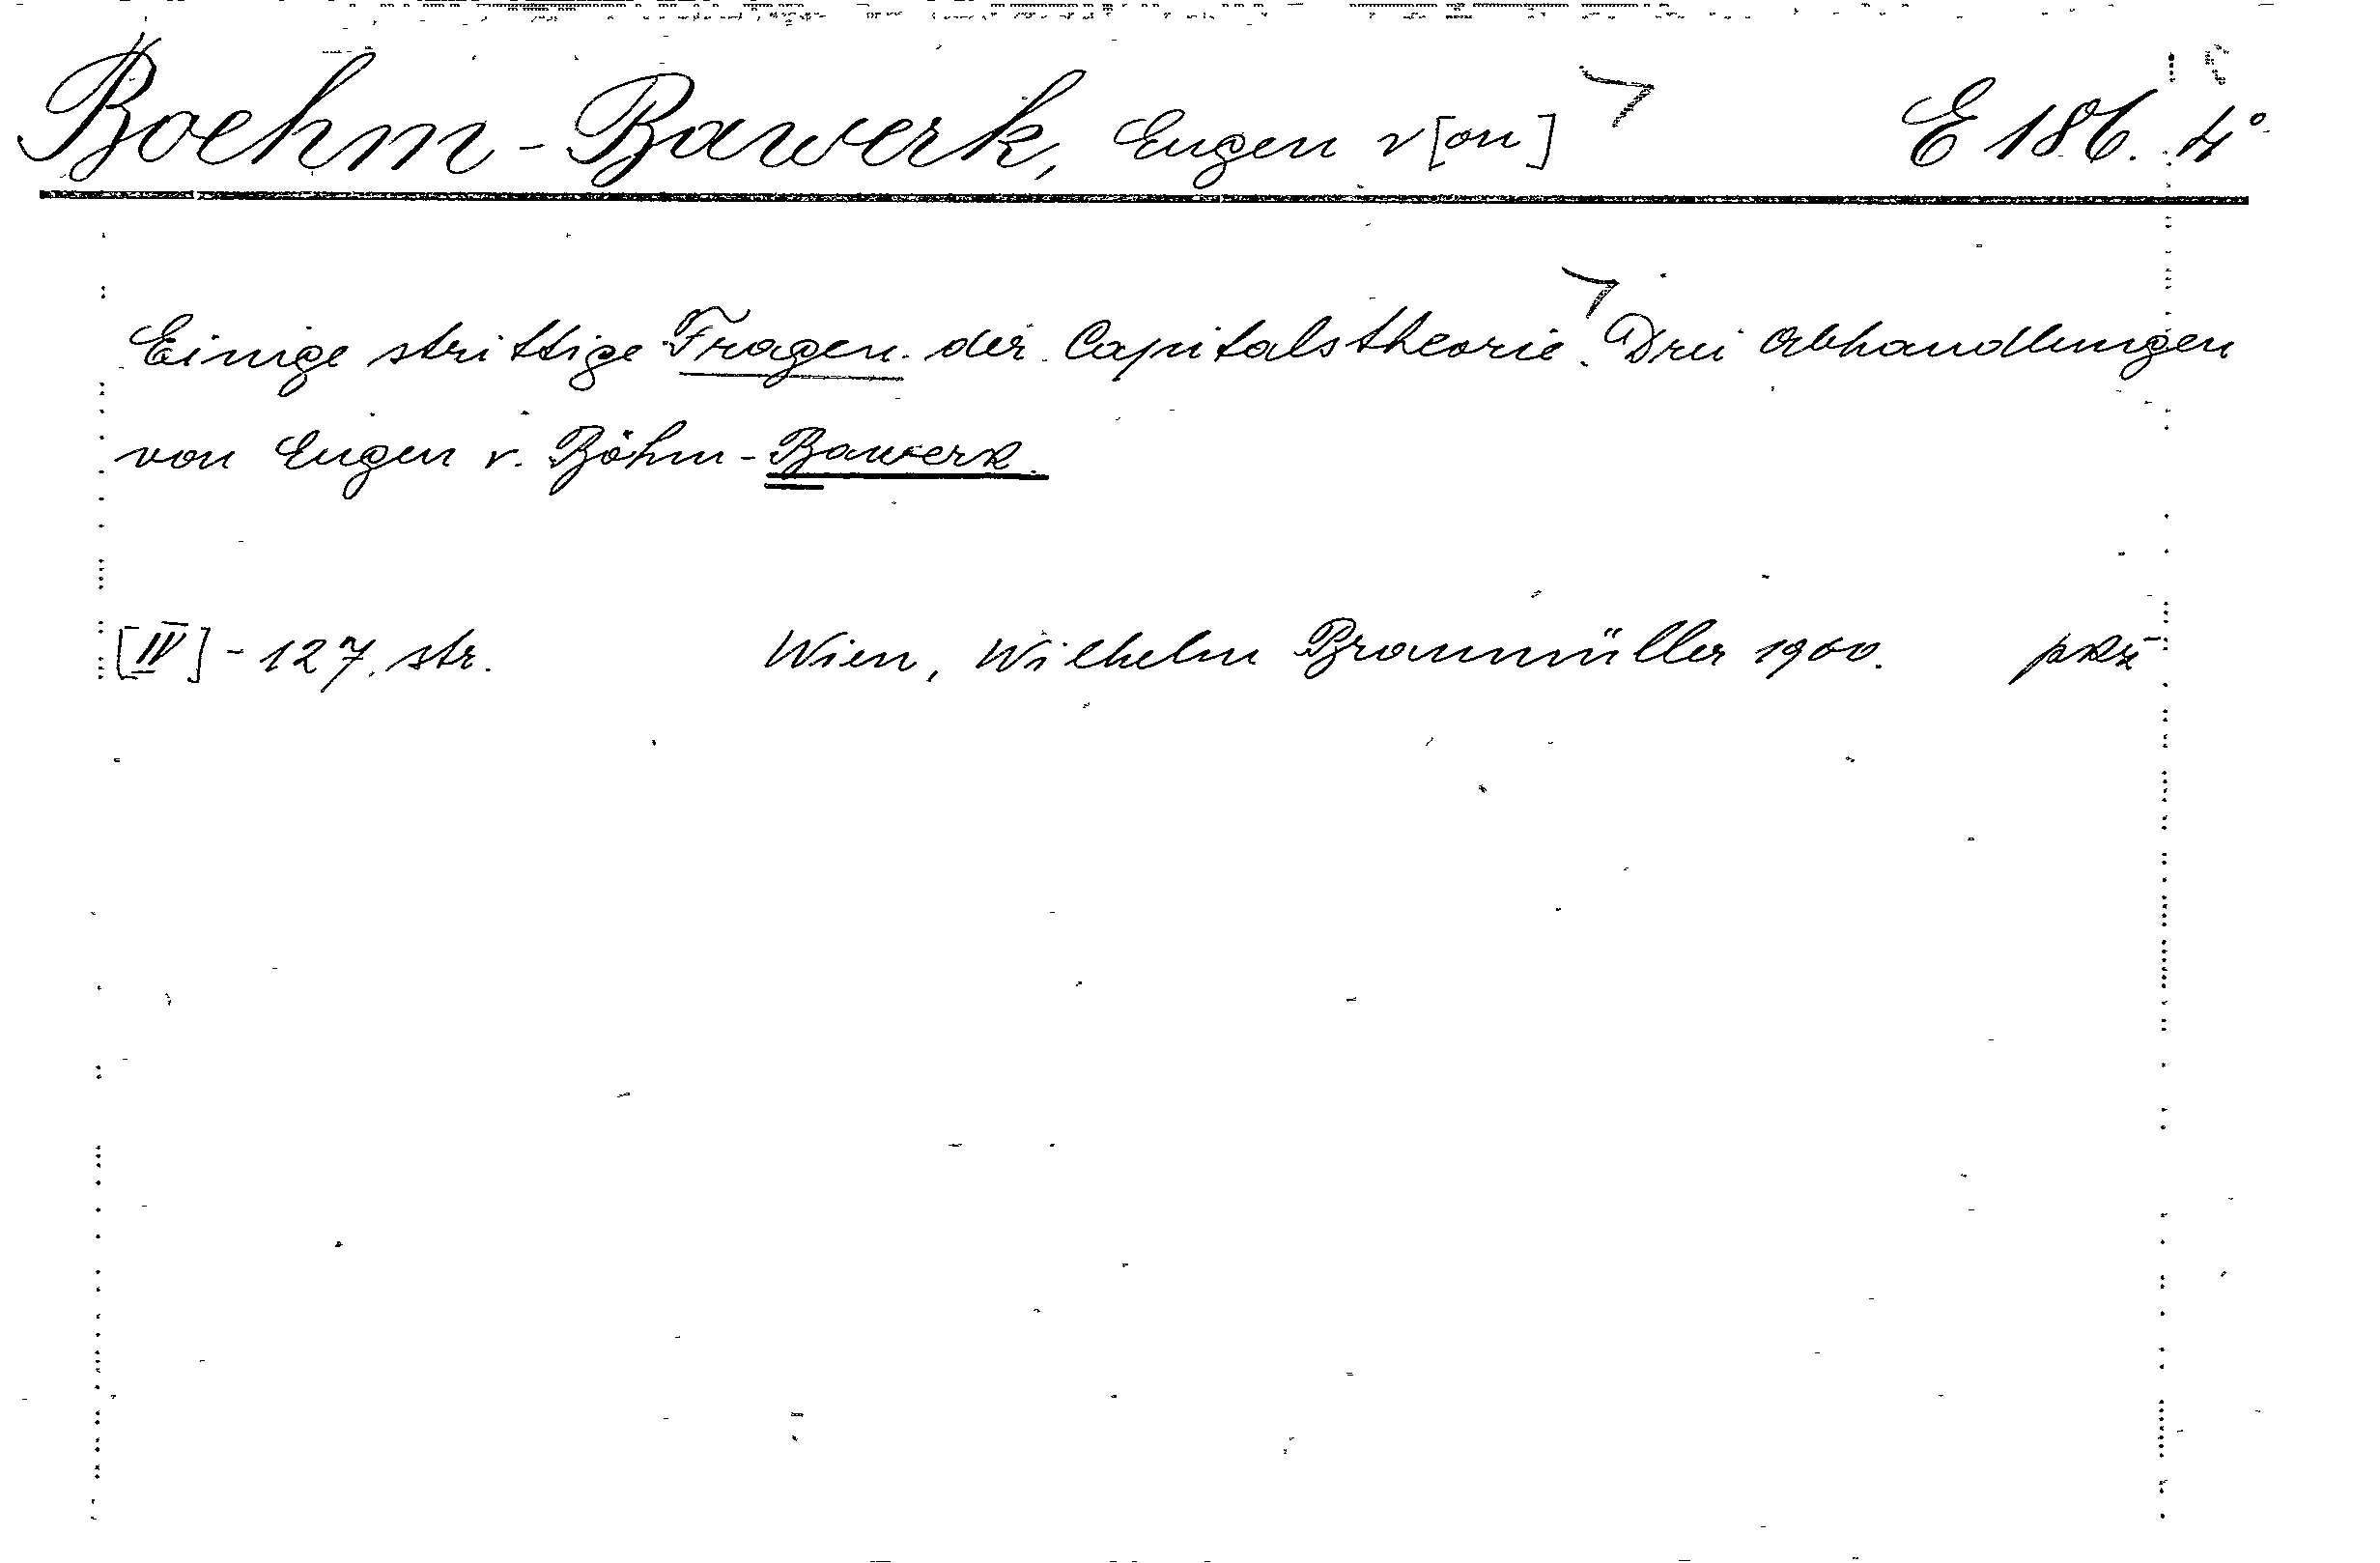 Boehm-Bawerk, Eugen v[on] E 186. 4°
Einige strittige Fragen der Capitalstheorie. Drei Abhandlungen
von Eugen v. Böhm-Bawerk.
[IV] - 127. str. Wien, Wilhelm Braumüller 1900.